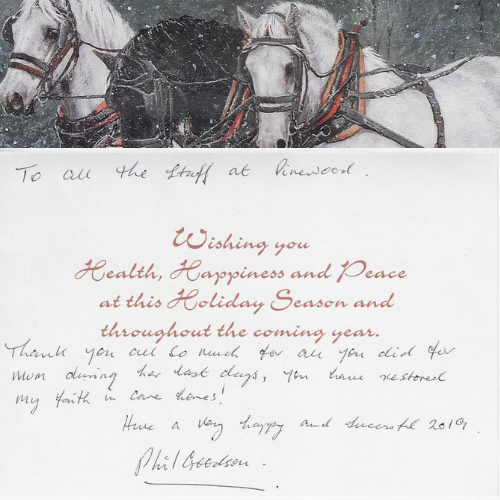 To all the Staff at Pinewood.
Wishing you
Health, Happiness and Peace
at this Holiday Season and
throughout the coming year.
Thank you all so much for all you did for
Mum during her last days, you have restored
my faith in care homes!
Have a very happy and successful 2019.
Phil Goodson.